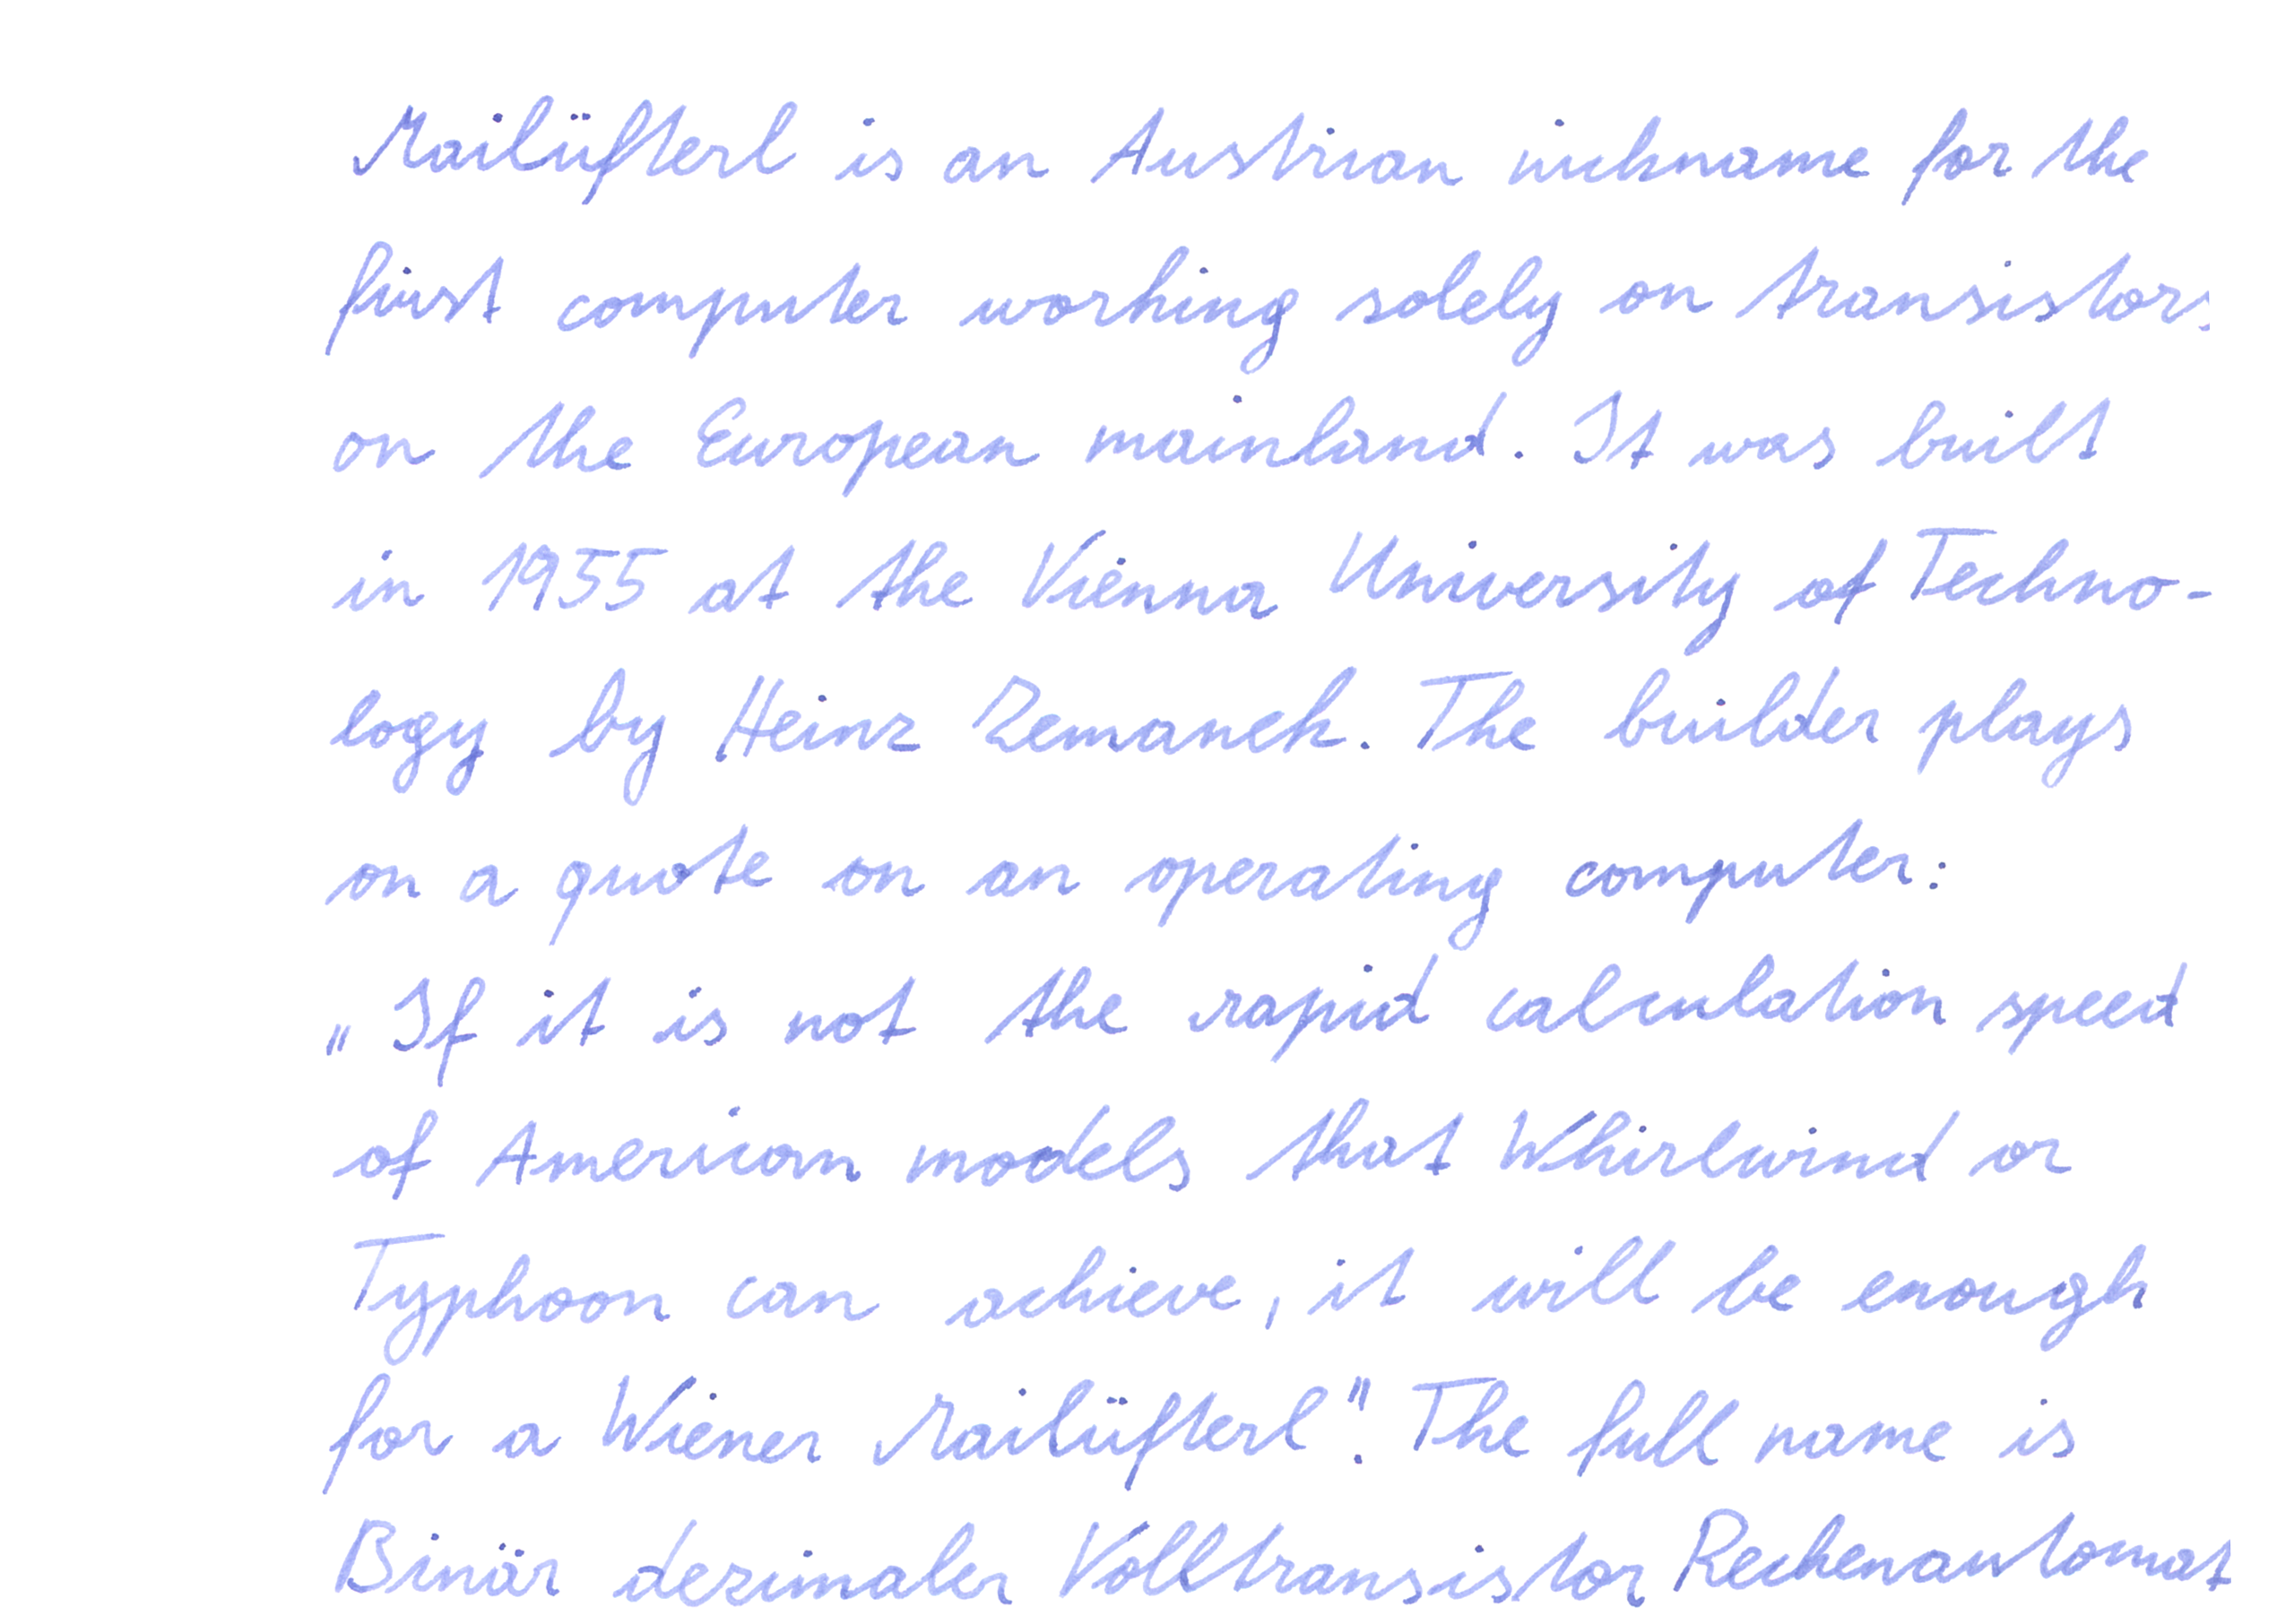 Mailüfterl is an Austrian nickname for the
first computer working solely on transistors
on the European mainland. It was built
in 1955 at the Vienna University of Techno-
logy by Heinz Zemanek. The builder plays
on a quote on an operating computer:
„If it is not the rapid calculation speed
of American models that Whirlwind or
Typhoon can achieve, it will be enough
for a Wiener Mailüfterl". The full name is
Binär dezimaler Volltransistor Rechenautomat